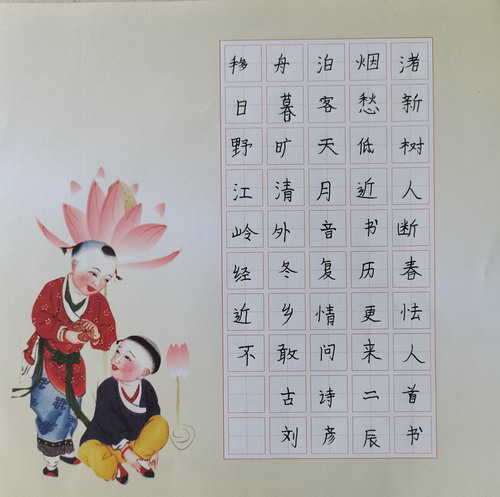 移舟泊烟渚
日暮客愁新
野旷天低树
江清月近人
岭外音书断
经冬复历春
近乡情更怯
不敢问来人
古诗二首
刘彦辰书